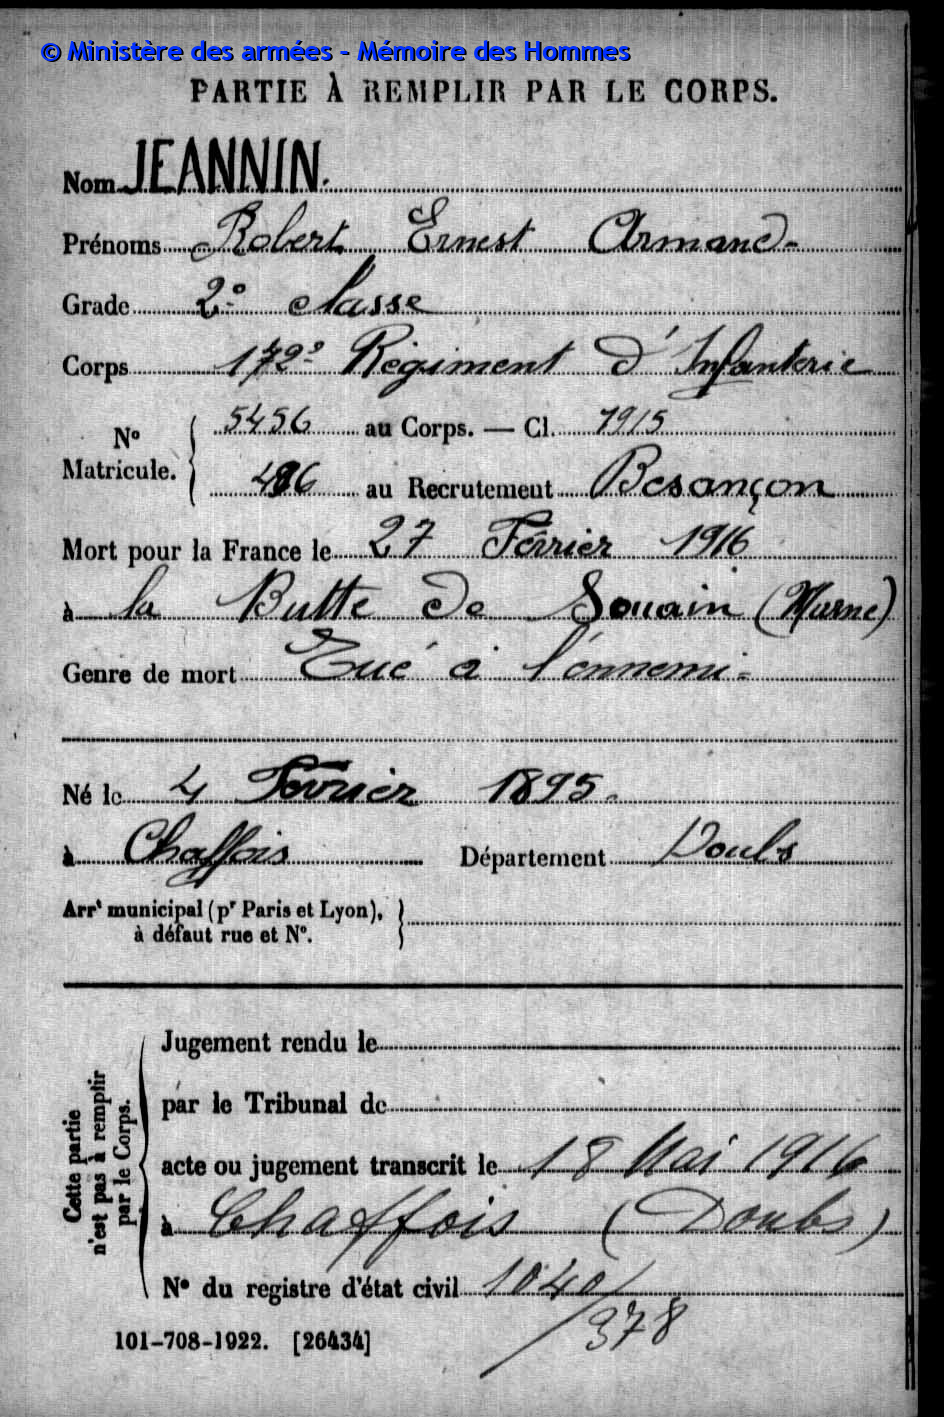 © Ministère des armées - Mémoire des Hommes
PARTIE À REMPLIR PAR LE CORPS.
Nom JEANNIN.
Prénoms Robert Ernest Armand
Grade 2e classe
Corps 172e Régiment d'Infanterie
No Matricule. 5456 au Corps. — Cl. 1915
486 au Recrutement Besançon
Mort pour la France le 27 Février 1916
à la Butte de Souain (Marne)
Genre de mort Tué à l'ennemi
Né le 4 Février 1895
à Chaffois Département Doubs
Arrt municipal (pr Paris et Lyon),
à défaut rue et No.
Cette partie n'est pas à remplir par le Corps.
Jugement rendu le
par le Tribunal de
acte ou jugement transcrit le 18 Mai 1916
à Chaffois (Doubs)
No du registre d'état civil 1040/
378
101-708-1922. [26434]